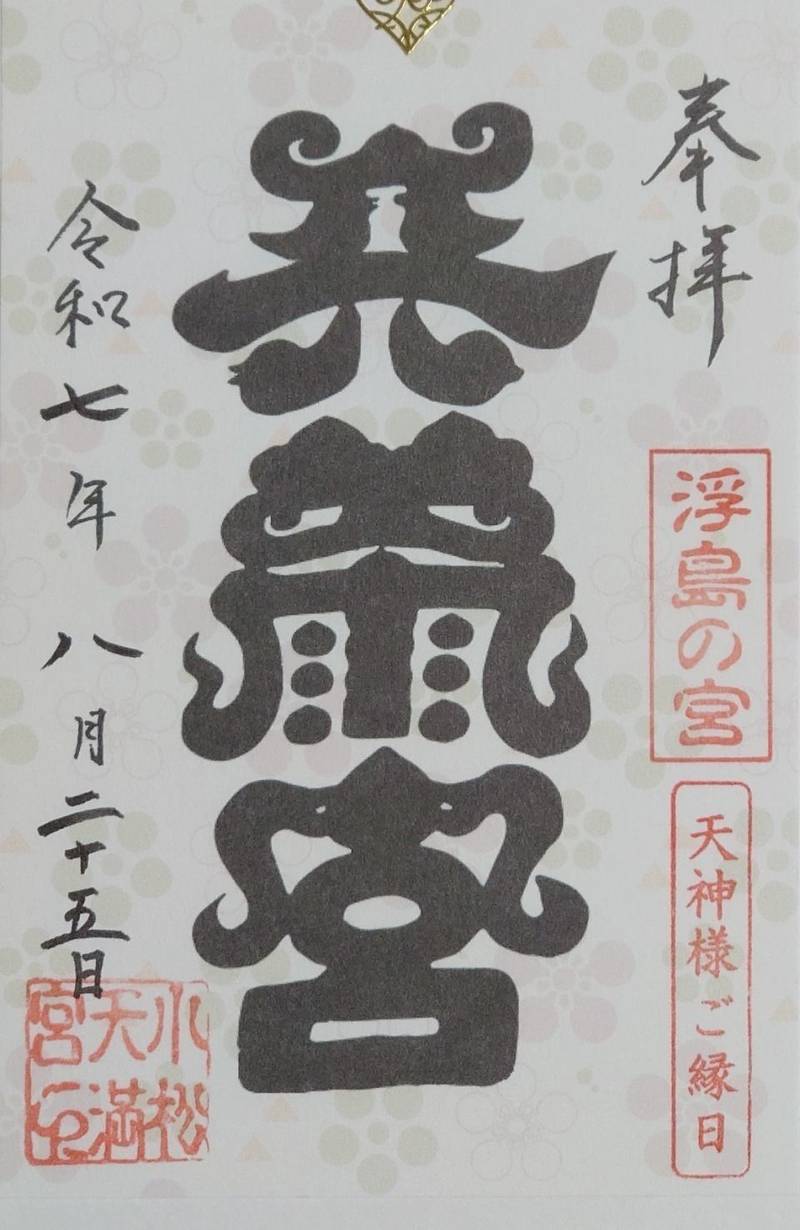 奉拝
浮島の宮
天神様ご縁日
天満宮
令和七年 八月二十五日
小松
天満
宮印